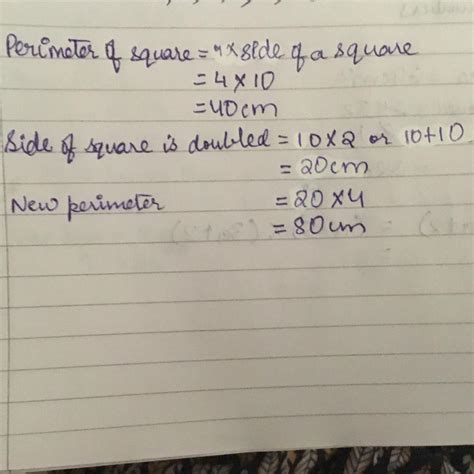 Perimeter of square = 4 x side of a square
= 4 x 10
= 40cm
Side of square is doubled = 10 x 2 or 10+10
= 20cm
New perimeter = 20 x 4
= 80cm